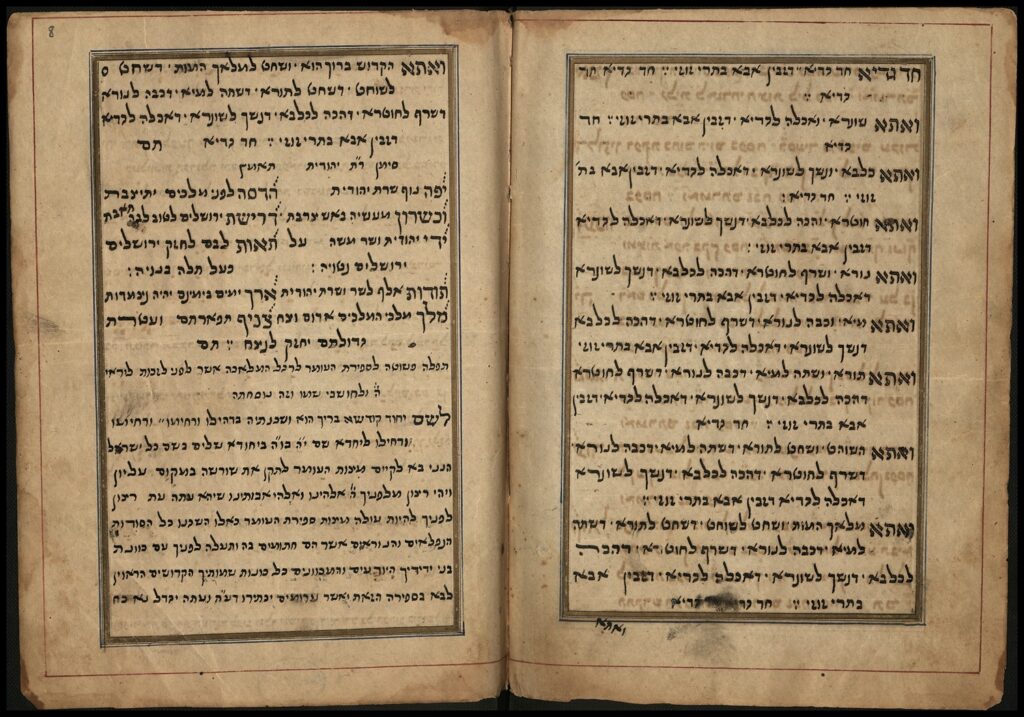 חד גדיא חד גדיא דזבין אבא בתרי זוזי חד גדיא חד
גדיא
ואתא שונרא ואכלה לגדיא דזבין אבא בתרי זוזי חד
גדיא
ואתא כלבא ונשך לשונרא דאכלה לגדיא דזבין אבא בת'
זוזי חד גדיא
ואתא חוטרא והכה לכלבא דנשך לשונרא דאכלה לגדיא
דזבין אבא בתרי זוזי
ואתא נורא ושרף לחוטרא דהכה לכלבא דנשך לשונרא
דאכלה לגדיא דזבין אבא בתרי זוזי
ואתא מיא וכבה לנורא דשרף לחוטרא דהכה לכלבא
דנשך לשונרא דאכלה לגדיא דזבין אבא בתרי זוזי
ואתא תורא ושתה למיא דכבה לנורא דשרף לחוטרא
דהכה לכלבא דנשך לשונרא דאכלה לגדיא דזבין
אבא בתרי זוזי חד גדיא
ואתא השוחט ושחט לתורא דשתה למיא דכבה לנורא
דשרף לחוטרא דהכה לכלבא דנשך לשונרא
דאכלה לגדיא דזבין אבא בתרי זוזי
ואתא מלאך המות ושחט לשוחט דשחט לתורא דשתה
למיא דכבה לנורא דשרף לחוטרא דהכה
לכלבא דנשך לשונרא דאכלה לגדיא דזבין אבא
בתרי זוזי חד גדיא
ואתא
8
ואתא הקדוש ברוך הוא ושחט למלאך המות דשחט
לשוחט דשחט לתורא דשתה למיא דכבה לנורא
דשרף לחוטרא דהכה לכלבא דנשך לשונרא דאכלה לגדיא
דזבין אבא בתרי זוזי חד גדיא תם
סימן ר"ת יהודית
יפה נוף שרת יהודית הדסה לפני מלכים יתיצבת
וכשרון מעשיה באש צרבת דרישת ירושלים לטוב
ידי יהודית ושר משה על תאות לבם לחזק ירושלים
ירושלים נטויה בעל תלה בנויה
תודות אלף לשר ושרת יהודית ארך ימים בימינם יהיה
מלך מלכי המלכים אדום וצח צניף תפארתם ועטרת
גדולתם יחזק לנצח תם
תפלה פשוטה לספירת העומר לרגל המלאכה אשר לפני לזכות ליראי
ה' ולחושבי שמו וזה נוסחתה
לשם יחוד קודשא בריך הוא ושכנתיה בדחילו ורחימו ורחימו
ודחילו ליחדא שם י"ה בו"ה ביחודא שלים בשם כל ישראל
הנני בא לקיים מצות העומר לתקן את שורשה במקום עליון
ויהי רצון מלפניך ה' אלהינו ואלהי אבותינו שיהא עתה עת רצון
לפניך להיות עולה מצות ספירת העומר כאלו השכנו כל הסודות
הנפלאים והנוראים אשר הם חתומים בה ותעלה לפניך עם כוונת
בני ידידיך היודעים והמכוונים כל כונות שמותיך הקדושים הראוין
לבא בספירה הזאת ואשר יכתירו ועתה יגדל נא כח